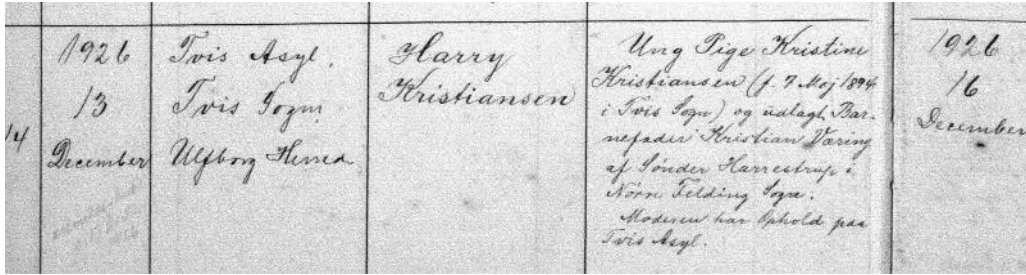 14
1926
13
December
Tvis Asyl.
Tvis Sogn
Ulfborg Herred
Harry
Kristiansen
Ung Pige Kristine
Kristiansen (f. 7 Maj 1894
i Tvis Sogn) og udlagt Bar-
nefader Kristian Væring
af Sønder Harrestrup i
Nørre Felding Sogn.
Moderen har Ophold paa
Tvis Asyl.
1926
16
December